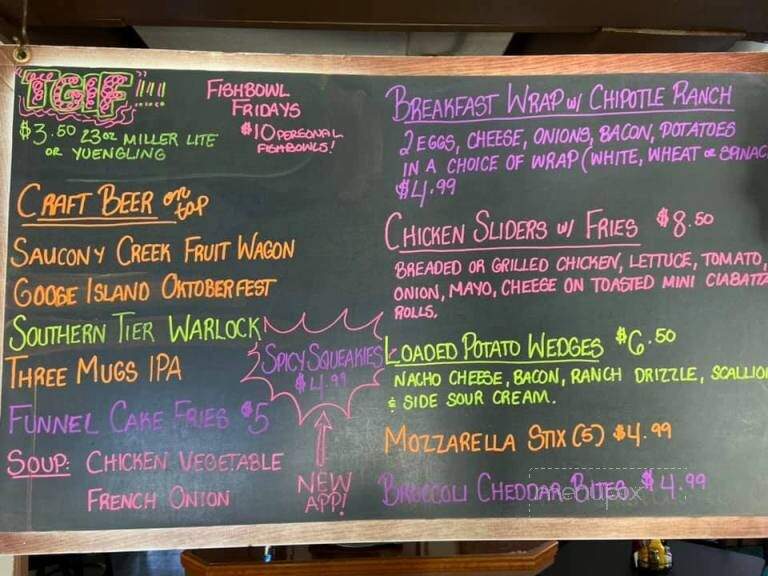 TGIF!!!
$3.50 23oz MILLER LITE
OR YUENGLING
FISHBOWL
FRIDAYS
$10 PERSONAL
FISHBOWLS!
CRAFT BEER on
tap
SAUCONY CREEK FRUIT WAGON
GOOSE ISLAND OKTOBERFEST
SOUTHERN TIER WARLOCK
THREE MUGS IPA
FUNNEL CAKE FRIES $5
SOUP: CHICKEN VEGETABLE
FRENCH ONION
SPICY SQUEAKIES
$4.99
NEW
APP!
BREAKFAST WRAP w/ CHIPOTLE RANCH
2 EGGS, CHEESE, ONIONS, BACON, POTATOES
IN A CHOICE OF WRAP (WHITE, WHEAT OR SPINAC
$4.99
CHICKEN SLIDERS w/ FRIES $8.50
BREADED OR GRILLED CHICKEN, LETTUCE, TOMATO,
ONION, MAYO, CHEESE ON TOASTED MINI CIABATTA
ROLLS.
LOADED POTATO WEDGES $6.50
NACHO CHEESE, BACON, RANCH DRIZZLE, SCALLION
& SIDE SOUR CREAM.
MOZZARELLA STIX (5) $4.99
BROCCOLI CHEDDAR BITES $4.99
menupix